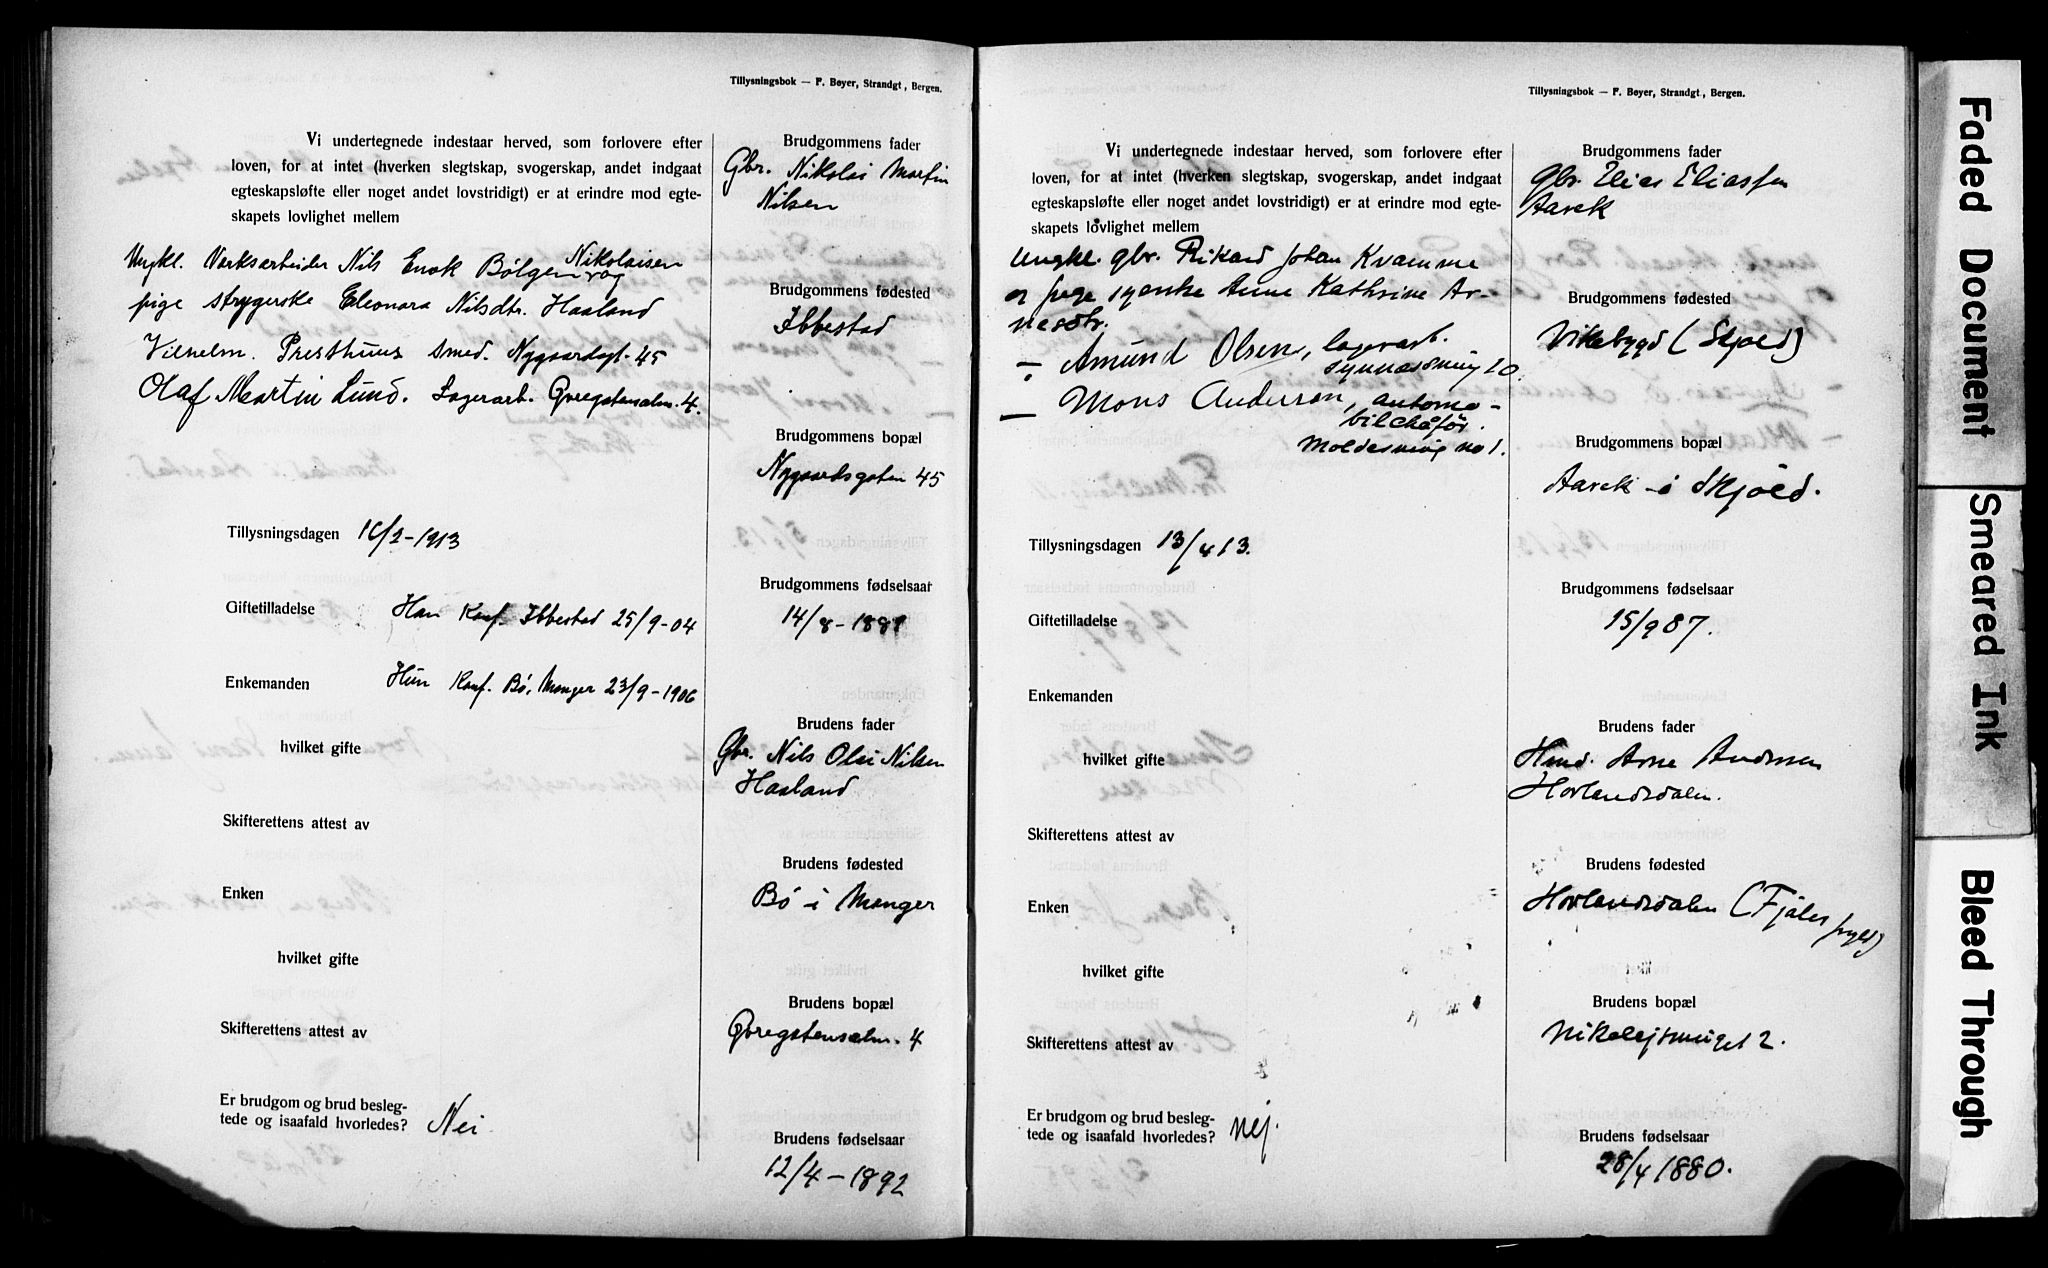 Tillysningsbok — F. Bøyer, Strandgt, Bergen.
Vi undertegnede indestaar herved, som forlovere efter
loven, for at intet (hverken slegtskap, svogerskap, andet indgaat
egteskapsløfte eller noget andet lovstridigt) er at erindre mod egte-
skapets lovlighet mellem
Ungkl. Verksarbeider Nils Enok Bølgen Nikolaisen og
pige strygerske Eleonora Nilsdtr. Haaland
Vilhelm. Presthuus smed. Nygaardsgt. 45
Olaf Martin Lund. Lagerarb. 4.
Tillysningsdagen 16/2-1913
Giftetilladelse Han Konf. Ibbestad 25/9-04
Enkemanden Hun Konf. Bø, Manger 23/9-1906
hvilket gifte
Skifterettens attest av
Enken
hvilket gifte
Skifterettens attest av
Er brudgom og brud besleg-
tede og isaafald hvorledes? Nei
Brudgommens fader
Gbr. Nikolai Martin
Nilsen
Brudgommens fødested
Ibbestad
Brudgommens bopæl
Nygaardsgaten 45
Brudgommens fødselsaar
14/8-1889
Brudens fader
Gbr. Nils Olai Nilsen
Haaland
Brudens fødested
Bø i Manger
Brudens bopæl
4
Brudens fødselsaar
12/4-1892
Tillysningsbok — F. Bøyer, Strandgt., Bergen.
Vi undertegnede indestaar herved, som forlovere efter
loven, for at intet (hverken slegtskap, svogerskap, andet indgaat
egteskapsløfte eller noget andet lovstridigt) er at erindre mod egte-
skapets lovlighet mellem
Ungkl. gbr. Rikard Johan Kvamme
og pige syerske Anne Kathrine Ar-
nesdtr.
— Amund Olsen, lagerarb.
20
— Mons Anderson, automo-
bilchåfør.
no 1.
Tillysningsdagen 13/4 13.
Giftetilladelse
Enkemanden
hvilket gifte
Skifterettens attest av
Enken
hvilket gifte
Skifterettens attest av
Er brudgom og brud besleg-
tede og isaafald hvorledes? Nej.
Brudgommens fader
gbr. Elias Eliassen
Aarek
Brudgommens fødested
Vikebygd (Skjold)
Brudgommens bopæl
Aarek i Skjold.
Brudgommens fødselsaar
15/9 87.
Brudens fader
Hmd. Arne Andersen
Hovlandsdalen.
Brudens fødested
Hovlandsdalen (Fjaler
Brudens bopæl
2.
Brudens fødselsaar
28/4 1880.
Faded Document
Smeared Ink
Bleed Through